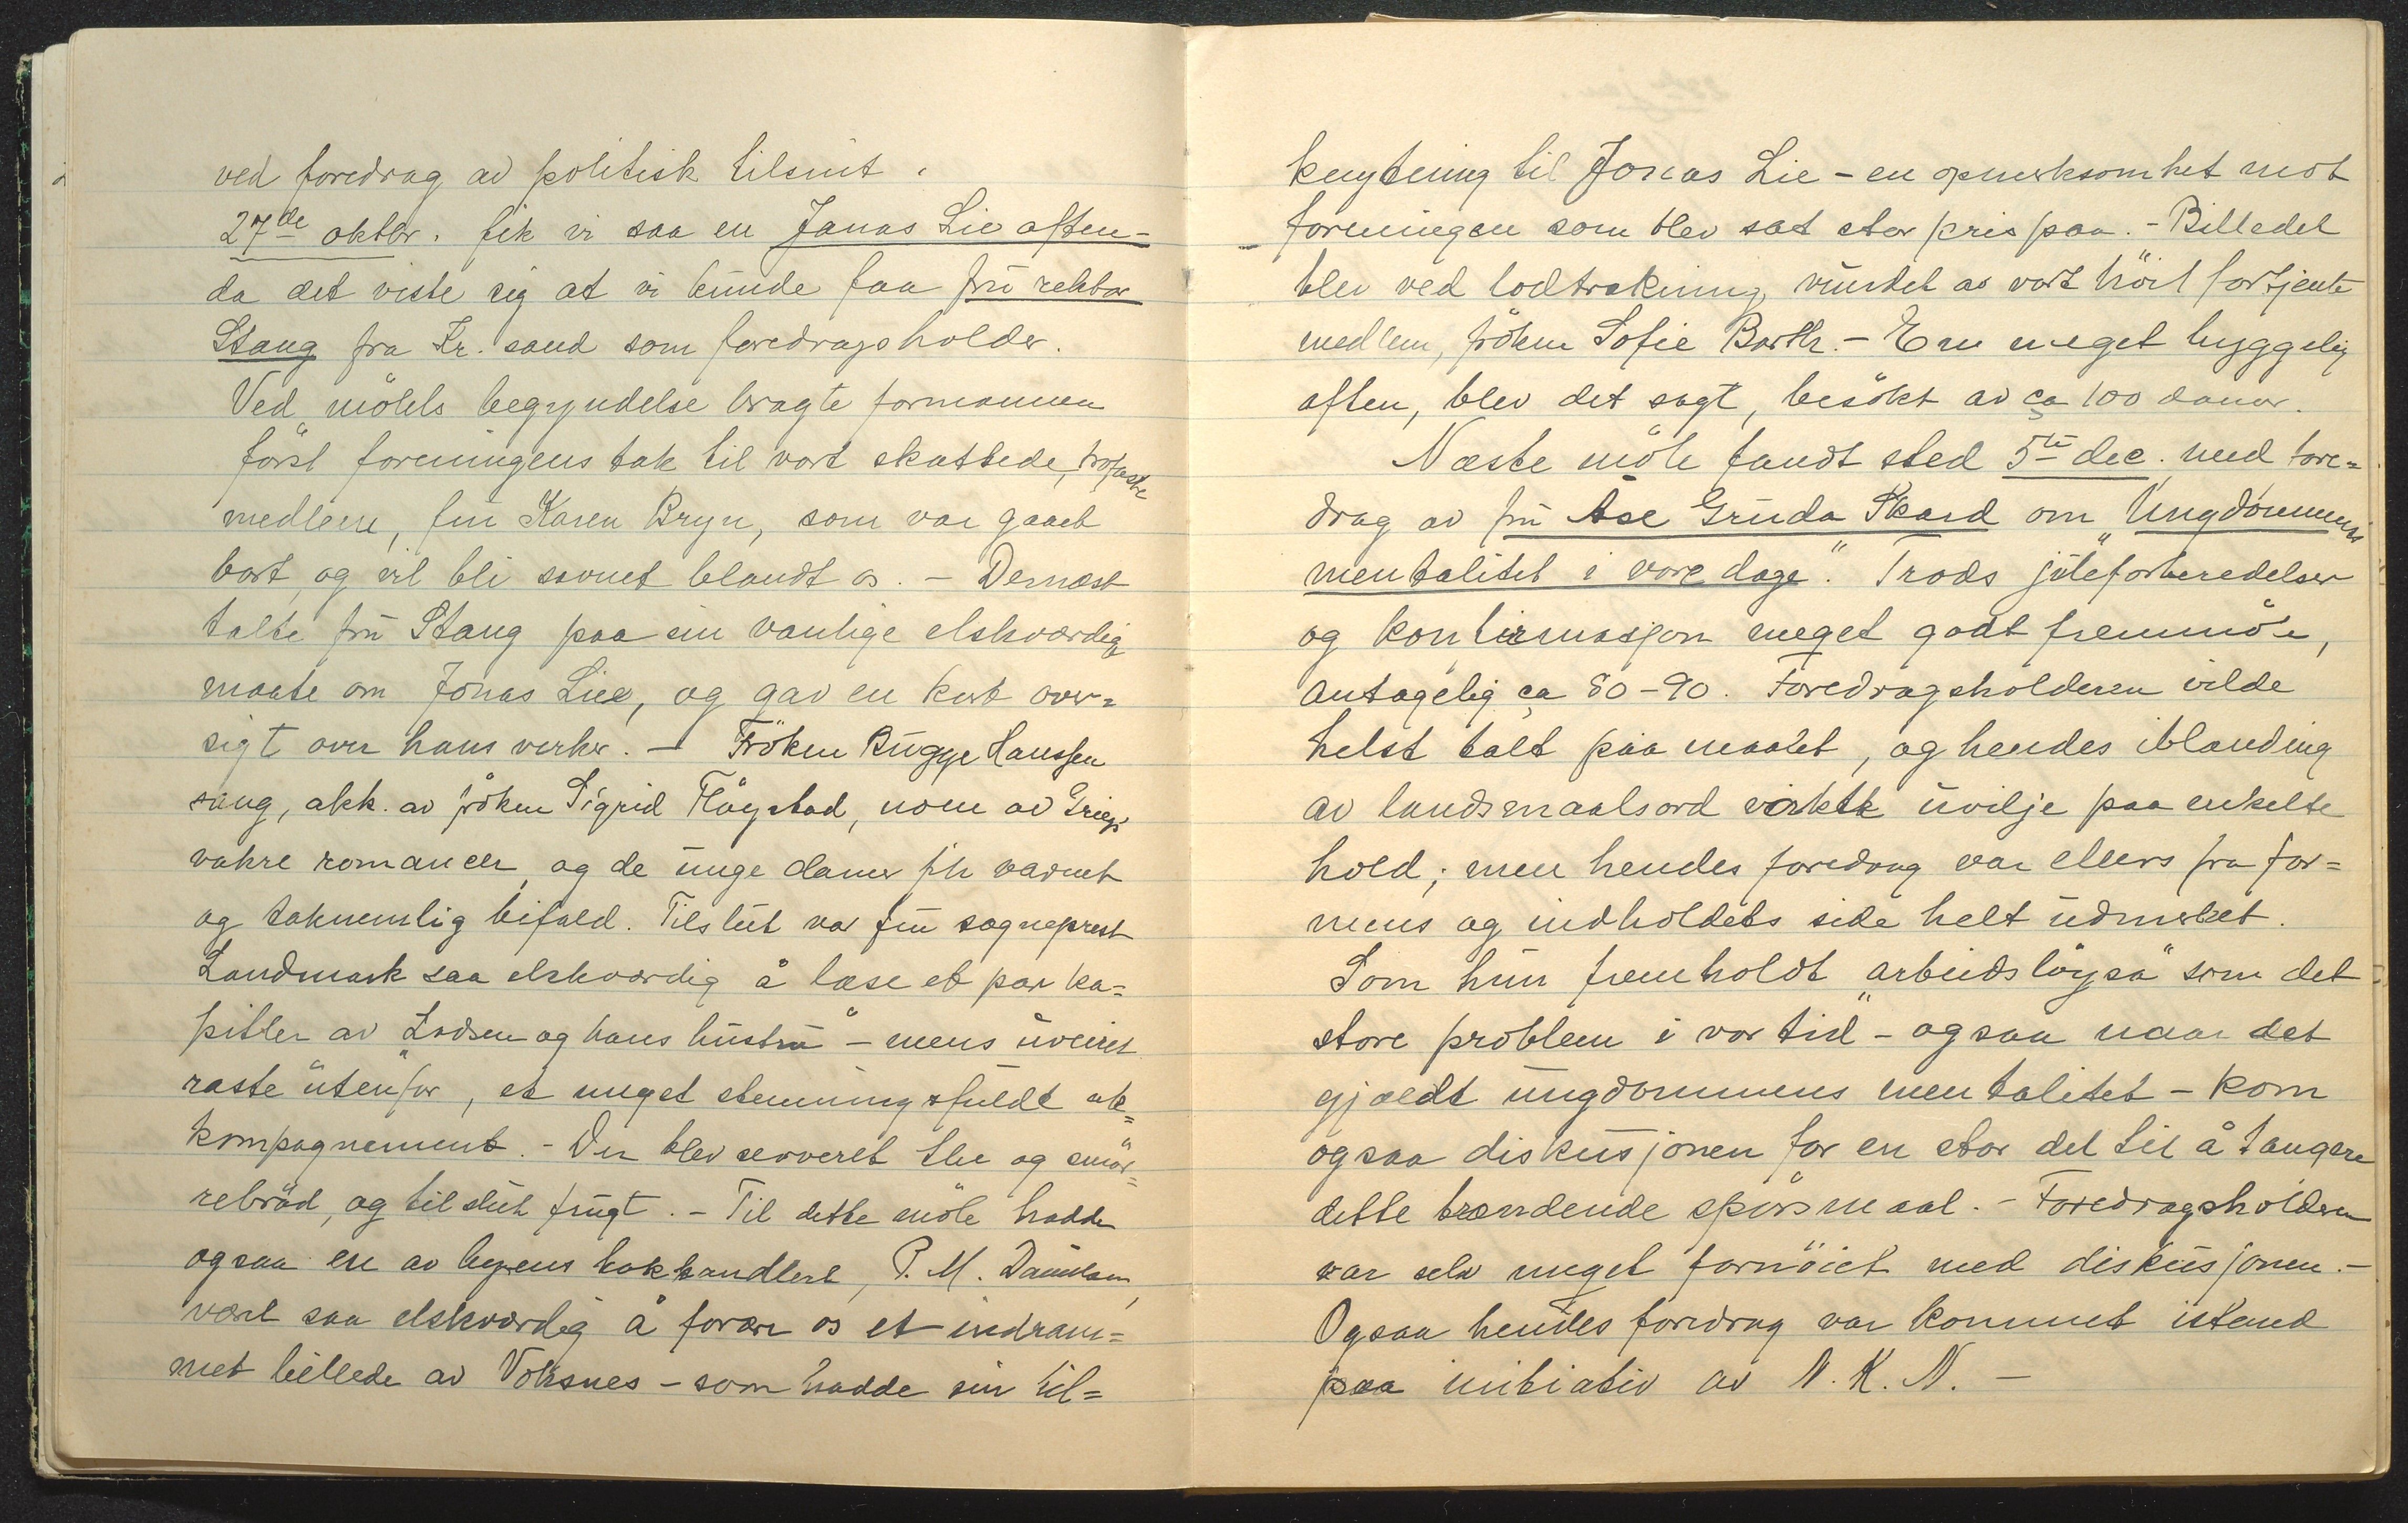 ved foredrag av politisk tilsnit.
27de oktbr. fik vi saa en Jonas Lie aften-
da det viste sig at vi kunde faa fru rektor
Stang fra Kr.sand som foredragsholder.
Ved mötets begyndelse bragte formannen
först foreningens tak til vort skattede, trofaste
medlem, fru Karen Bryn, som var gaaet
bort, og vil bli savnet blandt os. - Dernæst
talte fru Stang paa sin vanlige elskværdig
maate om Jonas Lie, og gav en kort over=
sigt over hans verker. - Fröken Bugge Hanssen
sang, akk. av fröken Sigrid Flöystad, noen av Griegs
vakre romancer, og de unge damer fik varmt
og taknemlig bifald. Tilslut var fru sogneprest
Landmark saa elskværdig å læse et par ka=
pitler av "Lodsen og hans hustru" - mens uveiret
raste utenfor, et meget stemningsfuldt ak=
kompagnement. - Der blev serveret the og smör=
rebröd, og tilslut frugt. - Til dette möte hadde
ogsaa en av byens bokhandlere, P. M. Danielsen,
været saa elskværdig å forære os et indram=
met billede av Voksnes - som hadde sin til=
knytning til Jonas Lie - en opmerksomhet mot
foreningen som blev sat stor pris paa. - Billedet
blev ved lodtrækning vundet av vort höit fortjente
medlem, fröken Sofie Barth. - En meget hyggelig
aften, blev det sagt, besökt av ca 100 damer.
Næste möte fandt sted 5te dec. med fore=
drag av fru Åse Gruda Skard om "Ungdommens
mentalitet i vore dage". Trods juleforberedelser
og konfirmasjon meget godt fremmöte,
antagelig ca 80-90. Foredragsholderen vilde
helst talt paa maalet, og hendes iblanding
av landsmaalsord virkte uvilje paa enkelte
hold; men hendes foredrag var ellers fra for=
mens og indholdets side helt udmerket.
Som hun fremholdt "arbeidslöysa" som det
store problem i vor tid - ogsaa naar det
gjældt ungdommens mentalitet - kom
ogsaa diskusjonen for en stor del til å tangere
dette brændende spörsmaal. - Foredragsholderen
var selv meget fornöiet med diskusjonen. -
Ogsaa hendes foredrag var kommet istand
paa initiativ av N. K. N. -